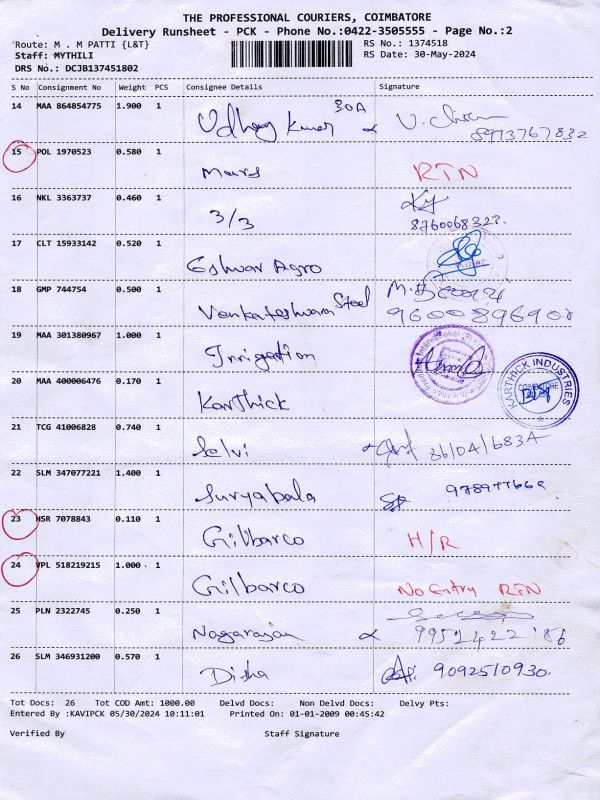 THE PROFESSIONAL COURIERS, COIMBATORE
Delivery Runsheet - PCK - Phone No.:0422-3505555 - Page No.:2
Route: M . M PATTI {L&T} RS No.: 1374518
Staff: MYTHILI RS Date: 30-May-2024
DRS No.: DCJB137451802
S No Consignment No Weight PCS Consignee Details Signature
14 MAA 864854775 1.900 1 Udhay Kumar 30A 8973767832
15 POL 1970523 0.580 1 Mars RTN
16 NKL 3363737 0.460 1 3/3 8760068323.
17 CLT 15933142 0.520 1 Eshwar Agro
18 GMP 744754 0.500 1 Venkateshwara Steel 9600896900
19 MAA 301380967 1.000 1 Irrigation
20 MAA 400006476 0.170 1 Karthick KARTHICK INDUSTRIES COIMBATORE
21 TCG 41006828 0.740 1 Selvi 86/0A/683A
22 SLM 347077221 1.400 1 Suryabala
23 HSR 7078843 0.110 1 Gilbarco H/R
24 VPL 518219215 1.000 1 Gilbarco No Entry RTN
25 PLN 2322745 0.250 1 Nagarajan
26 SLM 346931200 0.570 1 Disha 9092510930.
Tot Docs: 26 Tot COD Amt: 1000.00 Delvd Docs: Non Delvd Docs: Delvy Pts:
Entered By :KAVIPCK 05/30/2024 10:11:01 Printed On: 01-01-2009 00:45:42
Verified By Staff Signature